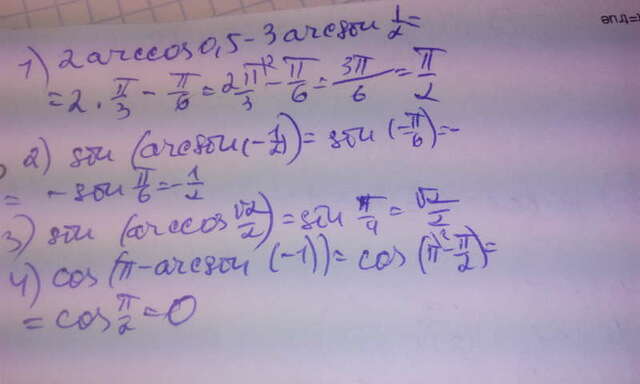 1) 2 arccos 0,5 - 3 arcsin 1/2 =
= 2 · π/3 - π/6 = 2π/3 - π/6 = 3π/6 = π/2
2) sin (arcsin(-1/2)) = sin (-π/6) = -
= - sin π/6 = - 1/2
3) sin (arccos √2/2) = sin π/4 = √2/2
4) cos (π - arcsin (-1)) = cos (π - π/2) =
= cos π/2 = 0